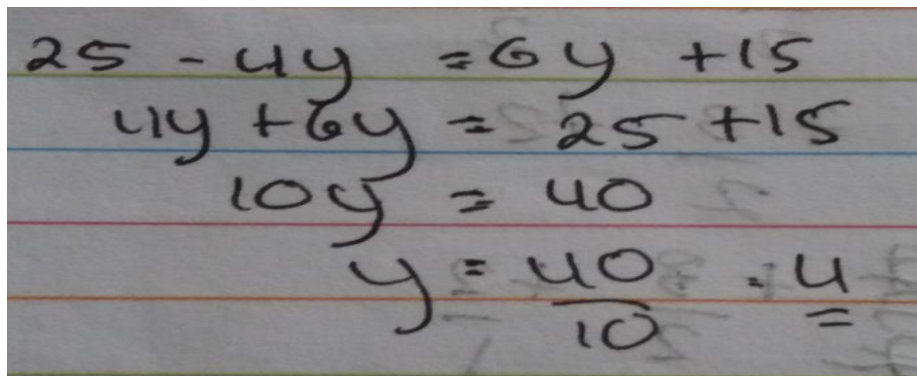 25 - 4y = 6y + 15
4y + 6y = 25 + 15
10y = 40
y = 40/10 = 4